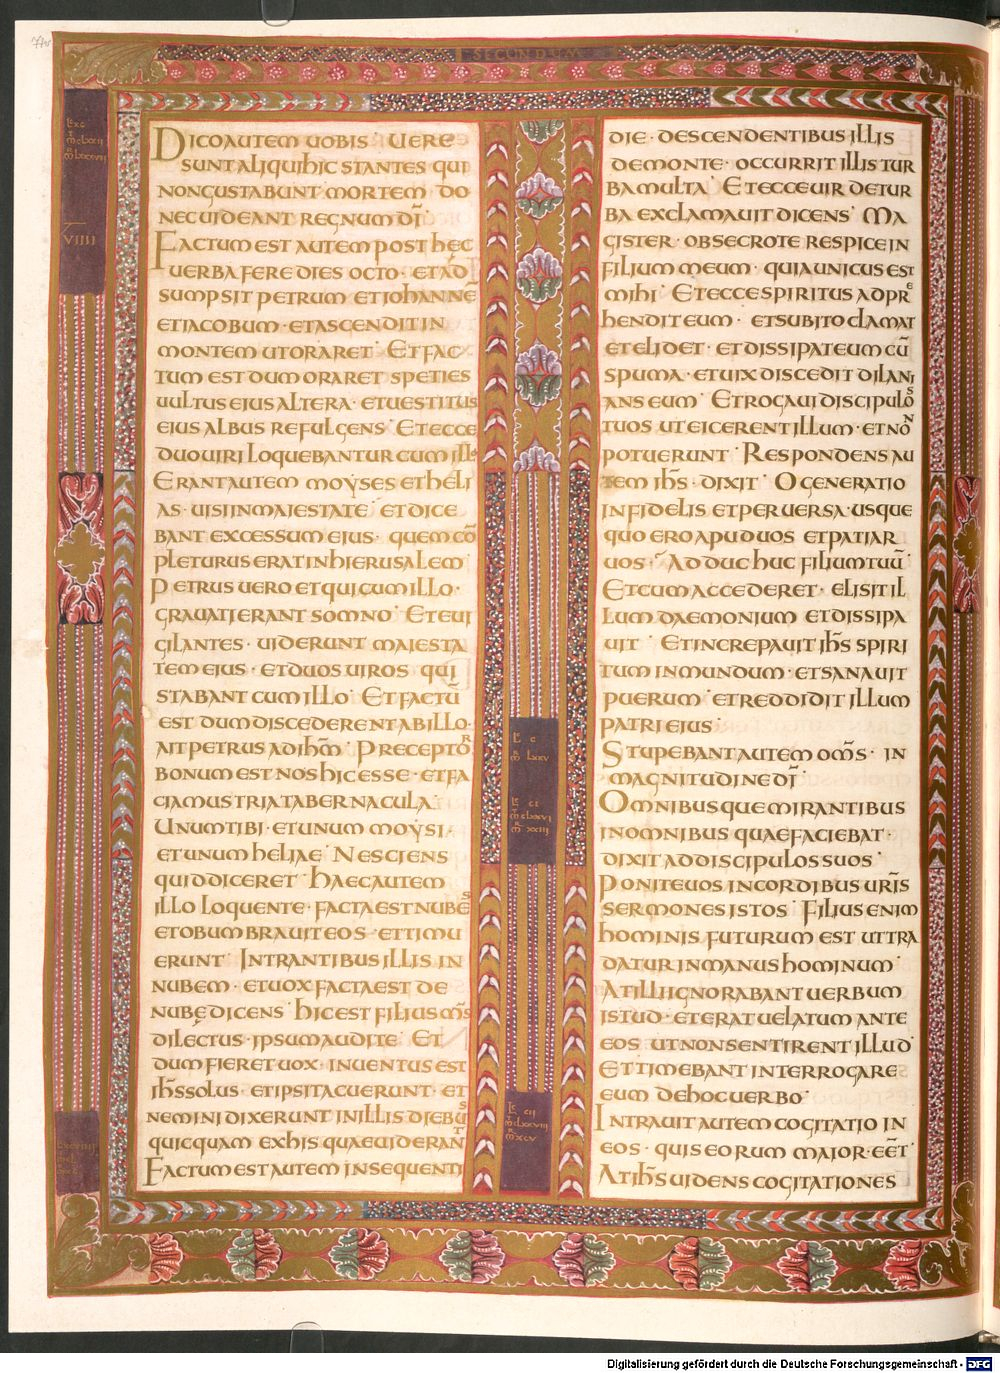 77v
SECUNDUM
DICO AUTEM UOBIS UERE
SUNT ALIQUI HIC STANTES QUI
NON GUSTABUNT MORTEM · DO
NEC UIDEANT REGNUM DI͞
FACTUM EST AUTEM POST HEC
UERBA FERE DIES OCTO · ET AD
SUMPSIT PETRUM ET IOHANNE͞
ET IACOBUM · ET ASCENDIT IN
MONTEM UT ORARET · ET FAC
TUM EST DUM ORARET SPETIES
UULTUS EIUS ALTERA · ET UESTITUS
EIUS ALBUS REFULGENS · ET ECCE
DUO UIRI LOQUEBANTUR CUM ILLO
ERANT AUTEM MOYSES ET HELI
AS · UISI IN MAIESTATE ET DICE
BANT EXCESSUM EIUS · QUEM CO͞
PLETURUS ERAT IN HIERUSALEM
PETRUS UERO ET QUI CUM ILLO ·
GRAUATI ERANT SOMNO · ET EUI
GILANTES · UIDERUNT MAIESTA
TEM EIUS · ET DUOS UIROS QUI
STABANT CUM ILLO · ET FACTU͞
EST DUM DISCEDERENT AB ILLO ·
AIT PETRUS AD IHM͞ · PRECEPTOR
BONUM EST NOS HIC ESSE · ET FA
CIAMUS TRIA TABERNACULA ·
UNUM TIBI · ET UNUM MOYSI ·
ET UNUM HELIAE · NESCIENS
QUID DICERET · HAEC AUTEM
ILLO LOQUENTE · FACTA EST NUBES
ET OBUMBRAUIT EOS · ET TIMU
ERUNT · INTRANTIBUS ILLIS IN
NUBEM · ET UOX FACTA EST DE
NUBE DICENS · HIC EST FILIUS MS͞
DILECTUS · IPSUM AUDITE · ET
DUM FIERET UOX · INUENTUS EST
IHS͞ SOLUS · ET IPSI TACUERUNT · ET
NEMINI DIXERUNT IN ILLIS DIEBUS
QUICQUAM EX HIS QUAE UIDERANT
FACTUM EST AUTEM IN SEQUENTI
DIE · DESCENDENTIBUS ILLIS
DE MONTE · OCCURRIT ILLIS TUR
BA MULTA · ET ECCE UIR DE TUR
BA EXCLAMAUIT DICENS · MA
GISTER · OBSECRO TE RESPICE IN
FILIUM MEUM · QUIA UNICUS EST
MIHI · ET ECCE SPIRITUS ADPRE
HENDIT EUM · ET SUBITO CLAMAT
ET ELIDET · ET DISSIPAT EUM CU͞
SPUMA · ET UIX DISCEDIT DILANI
ANS EUM · ET ROGAUI DISCIPULOS
TUOS UT EICERENT ILLUM · ET NON
POTUERUNT · RESPONDENS AU
TEM IHS͞ · DIXIT · O GENERATIO
INFIDELIS ET PERUERSA · USQUE
QUO ERO APUD UOS ET PATIAR
UOS · ADDUC HUC FILIUM TUU͞
ET CUM ACCEDERET · ELISIT IL
LUM DAEMONIUM ET DISSIPA
UIT · ET INCREPAUIT IHS͞ SPIRI
TUM INMUNDUM · ET SANAUIT
PUERUM · ET REDDIDIT ILLUM
PATRI EIUS ·
STUPEBANT AUTEM OMS͞ · IN
MAGNITUDINE DI͞
OMNIBUSQUE MIRANTIBUS
IN OMNIBUS QUAE FACIEBAT ·
DIXIT AD DISCIPULOS SUOS ·
PONITE UOS IN CORDIBUS URIS͞
SERMONES ISTOS · FILIUS ENIM
HOMINIS FUTURUM EST UT TRA
DATUR IN MANUS HOMINUM ·
AT ILLI IGNORABANT UERBUM
ISTUD · ET ERAT UELATUM ANTE
EOS UT NON SENTIRENT ILLUD ·
ET TIMEBANT INTERROGARE
EUM DE HOC UERBO ·
INTRAUIT AUTEM COGITATIO IN
EOS · QUIS EORUM MAIOR EET͞
AT IHS͞ UIDENS COGITATIONES
Digitalisierung gefördert durch die Deutsche Forschungsgemeinschaft - DFG